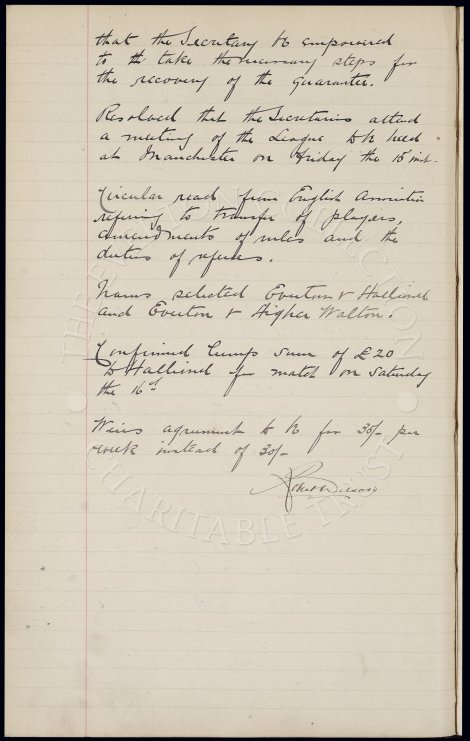 that the Secretary be empowered
to take the necessary steps for
the recovery of the guarantee.
Resolved that the Secretaries attend
a meeting of the League to be held
at Manchester on Friday the 15 inst.
Circular read from English Association
refering to transfer of players,
amendments of rules and the
duties of referees.
Teams selected Everton v Halliwell
and Everton v Higher Walton.
Confirmed lump sum of £20
to Halliwell for match on Saturday
the 16th
Weirs agreement to be for 30/- per
week instead of 30/-
THE EVERTON COLLECTION
CHARITABLE TRUST